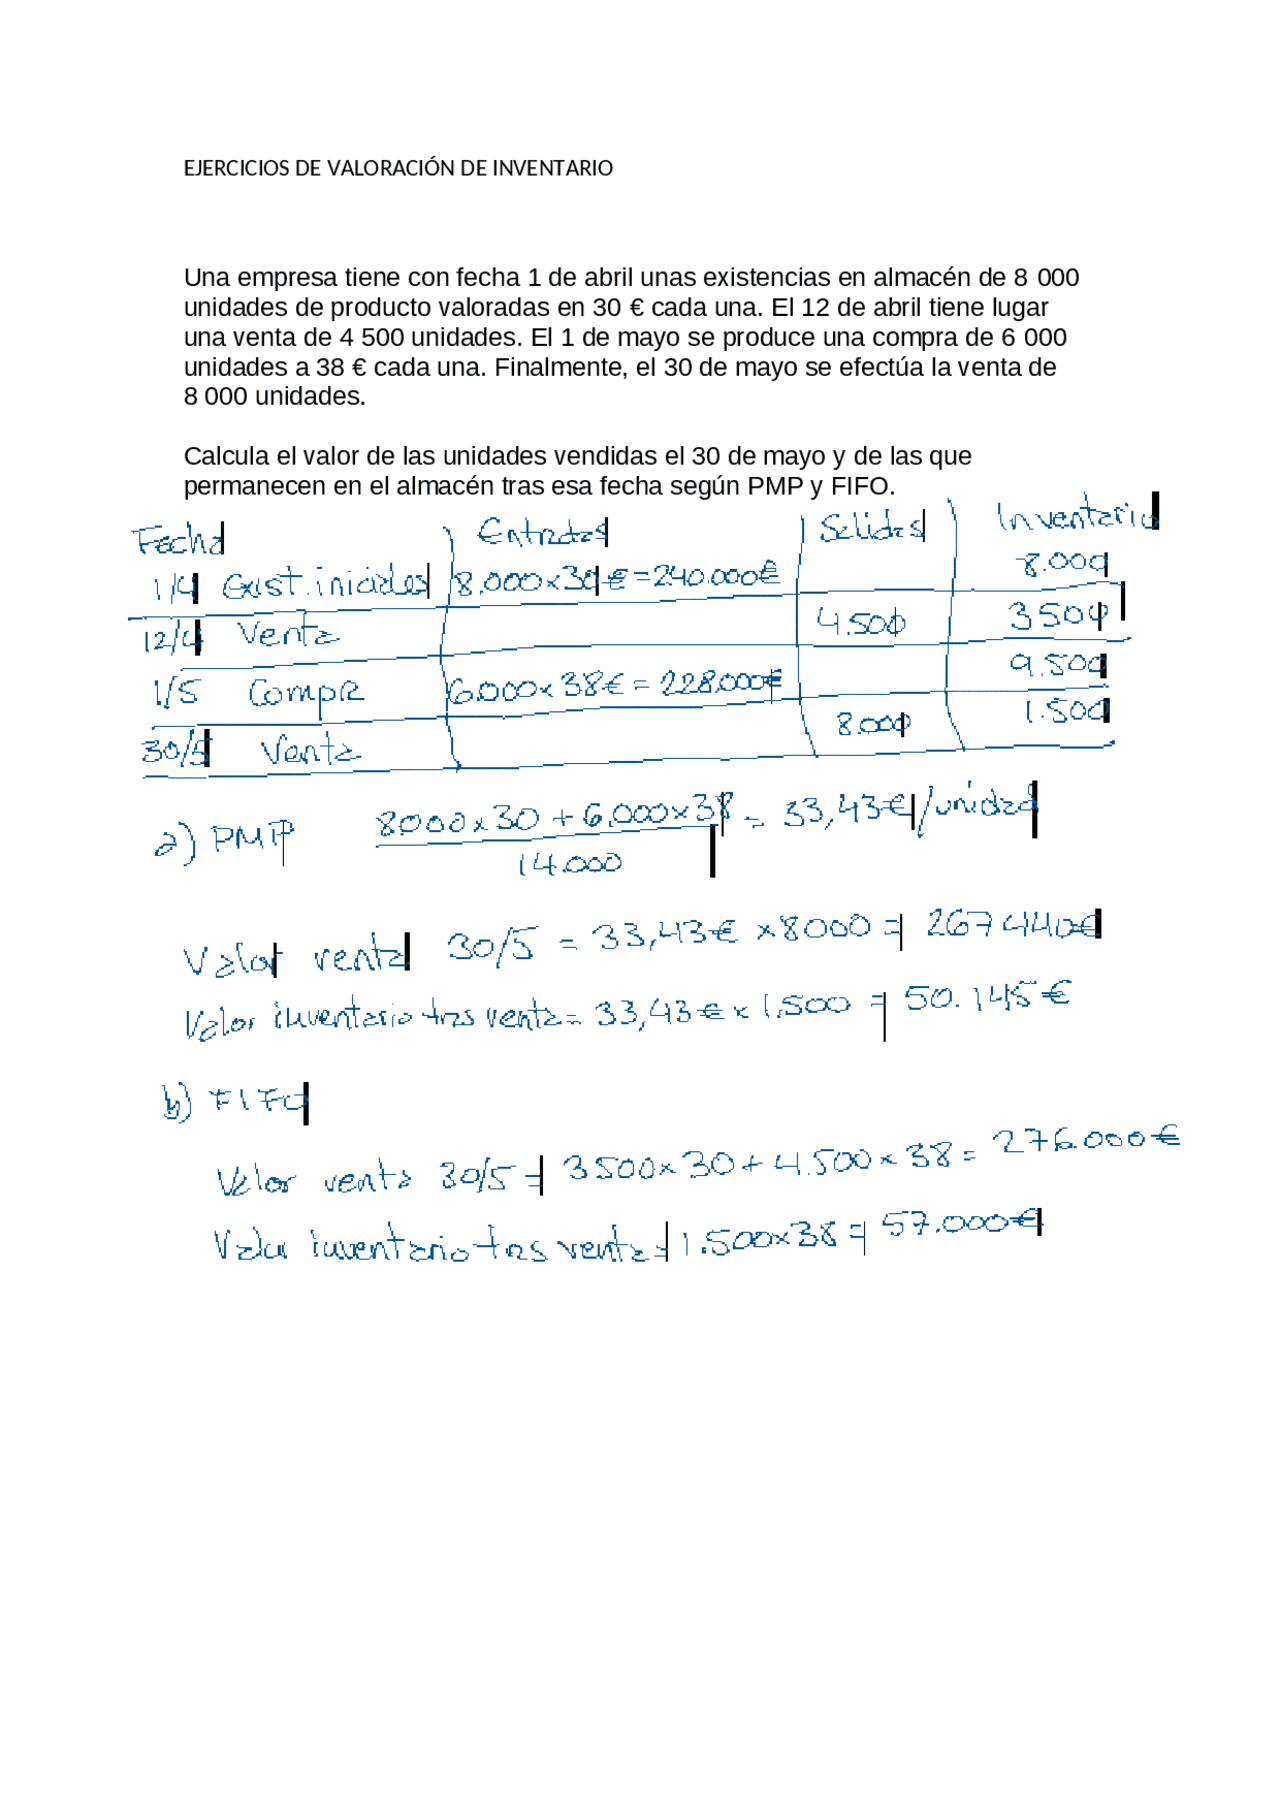 EJERCICIOS DE VALORACIÓN DE INVENTARIO
Una empresa tiene con fecha 1 de abril unas existencias en almacén de 8 000
unidades de producto valoradas en 30 € cada una. El 12 de abril tiene lugar
una venta de 4 500 unidades. El 1 de mayo se produce una compra de 6 000
unidades a 38 € cada una. Finalmente, el 30 de mayo se efectúa la venta de
8 000 unidades.
Calcula el valor de las unidades vendidas el 30 de mayo y de las que
permanecen en el almacén tras esa fecha según PMP y FIFO.
Fecha Entradas Salidas Inventario
1/4 Exist. iniciales 8.000x30€=240.000€ 8.000
12/4 Venta 4.500 3500
1/5 Compra 6.000x38€=228.000€ 9.500
30/5 Venta 8.000 1.500
a) PMP 8000x30+6.000x38 = 33,43€/unidad
14.000
Valor venta 30/5 = 33,43€ x8000 = 267440€
Valor inventario tras venta= 33,43€x1.500 = 50.145€
b) FIFO
Valor venta 30/5= 3500x30+4.500x38= 276.000€
Valor inventario tras venta= 1.500x38= 57.000€